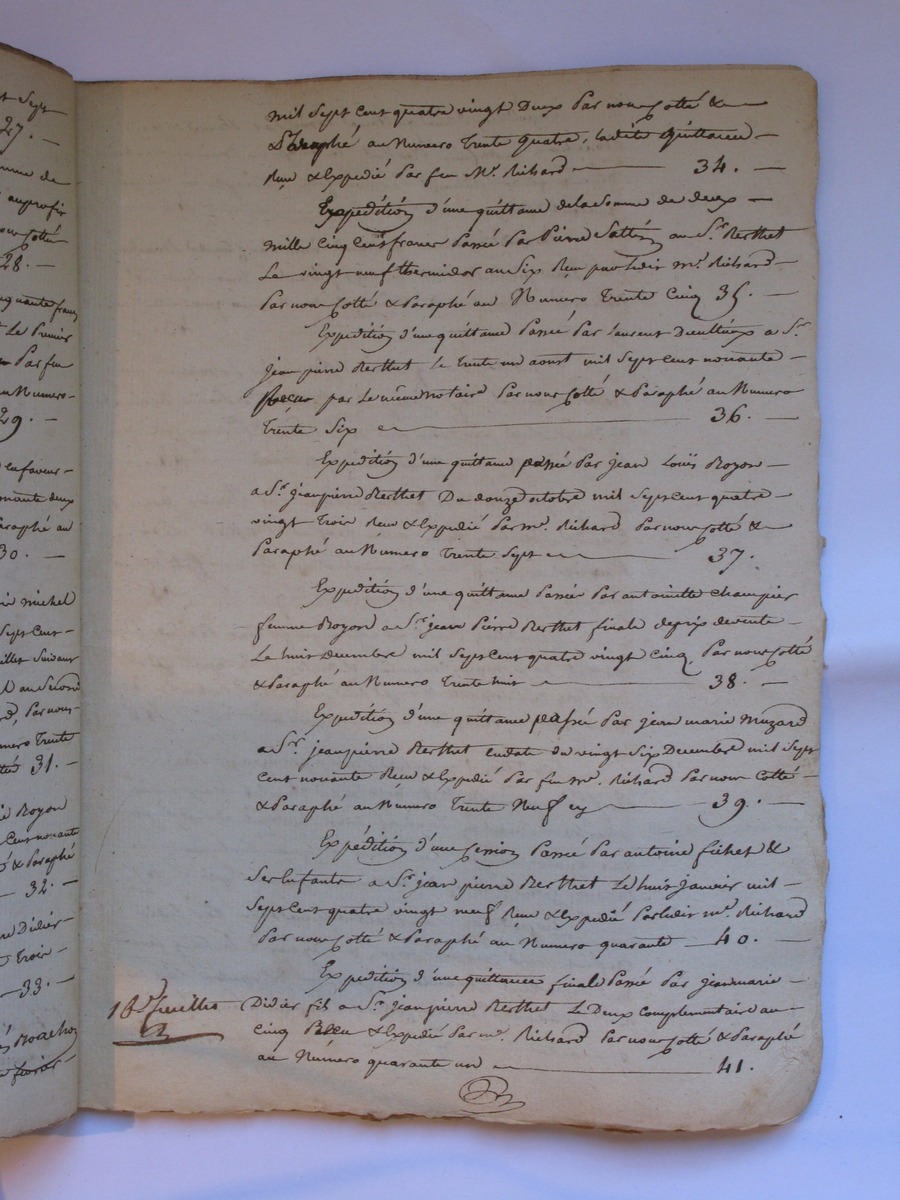 t Sept
27. —
mme de
auprofit
our Cotté
28. —
nquante francs
Le Premier
Par feu
au Numero
29. —
en faveur
mante deux
Paraphé au
30. —
michel
Sept Cent
Suivant
au Second
Par nous
mero Trente
31. —
Royon
Cent nonante
é & Paraphé
— 32. —
Didier
Troir —
— 33. —
mil Sept Cent quatre vingt Deux Par nous Cotté &
Paraphé au Numero Trente quatre, ladite quittance —
Reçu & Expedié Par feu Mr. Richard — 34. —
Expedition d'une quittance dela Somme de deux —
mille Cinq Cent francs Passée Par Pierre au Sr. Berthet
Le vingt neuf thermidor an Six Reçu par ledit mr. Richard
Par nous Cotté & Paraphé au Numero Trente Cinq 35. —
Expedition d'une quittance Passée Par Laurent a Sr.
jean pierre Berthet le Trente un aoust mil Sept Cent nonante —
par Le même notaire Par nous Cotté & Paraphé au Numero
Trente Six — 36. —
Expedition d'une quittance passée Par jean Loüis Royon —
a Sr. jean pierre Berthet Du douze octobre mil Sept Cent quatre —
vingt Troir Reçu & Expedié Par mr. Richard Par nous Cotté &
Paraphé au Numero Trente Sept — 37. —
Expedition d'une quittance Passée Par antoinette Champier
femme Royon a Sr. jean Pierre Berthet finale de prix de vente —
Le huit Decembre mil Sept Cent quatre vingt Cinq Par nous Cotté
& Paraphé au Numero Trente huit — 38. —
Expedition d'une quittance passée Par jean marie Muzard
a Sr. jean pierre Berthet en date du vingt Six Decembre mil Sept
Cent nonante Reçu & Expedié Par feu mr. Richard Par nous Cotté —
& Paraphé au Numero Trente Neuf — 39. —
Expédition d'une Cession Passée Par antoine fichet &
Ses Enfants a Sr. jean pierre Berthet Le huit janvier mil —
Sept Cent quatre vingt neuf Reçu & Expedié Par ledit mr. Richard
Par nous Cotté & Paraphé au Numero quarante — 40. —
Expedition d'une quittance finale Passé Par jean marie —
Didier fils a Sr. jean pierre Berthet Le Deux Complementaire an
Cinq & Expedié Par mr. Richard Par nous Cotté & Paraphé
au Numero quarante un — 41.
feuillet